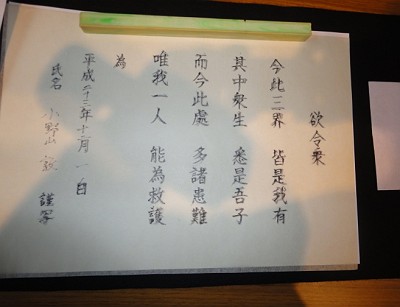 欲令衆
今此三界　皆是我有
其中衆生　悉是吾子
而今此處　多諸患難
唯我一人　能為救護
為
平成二十三年十二月一日
氏名　小野山　謹写